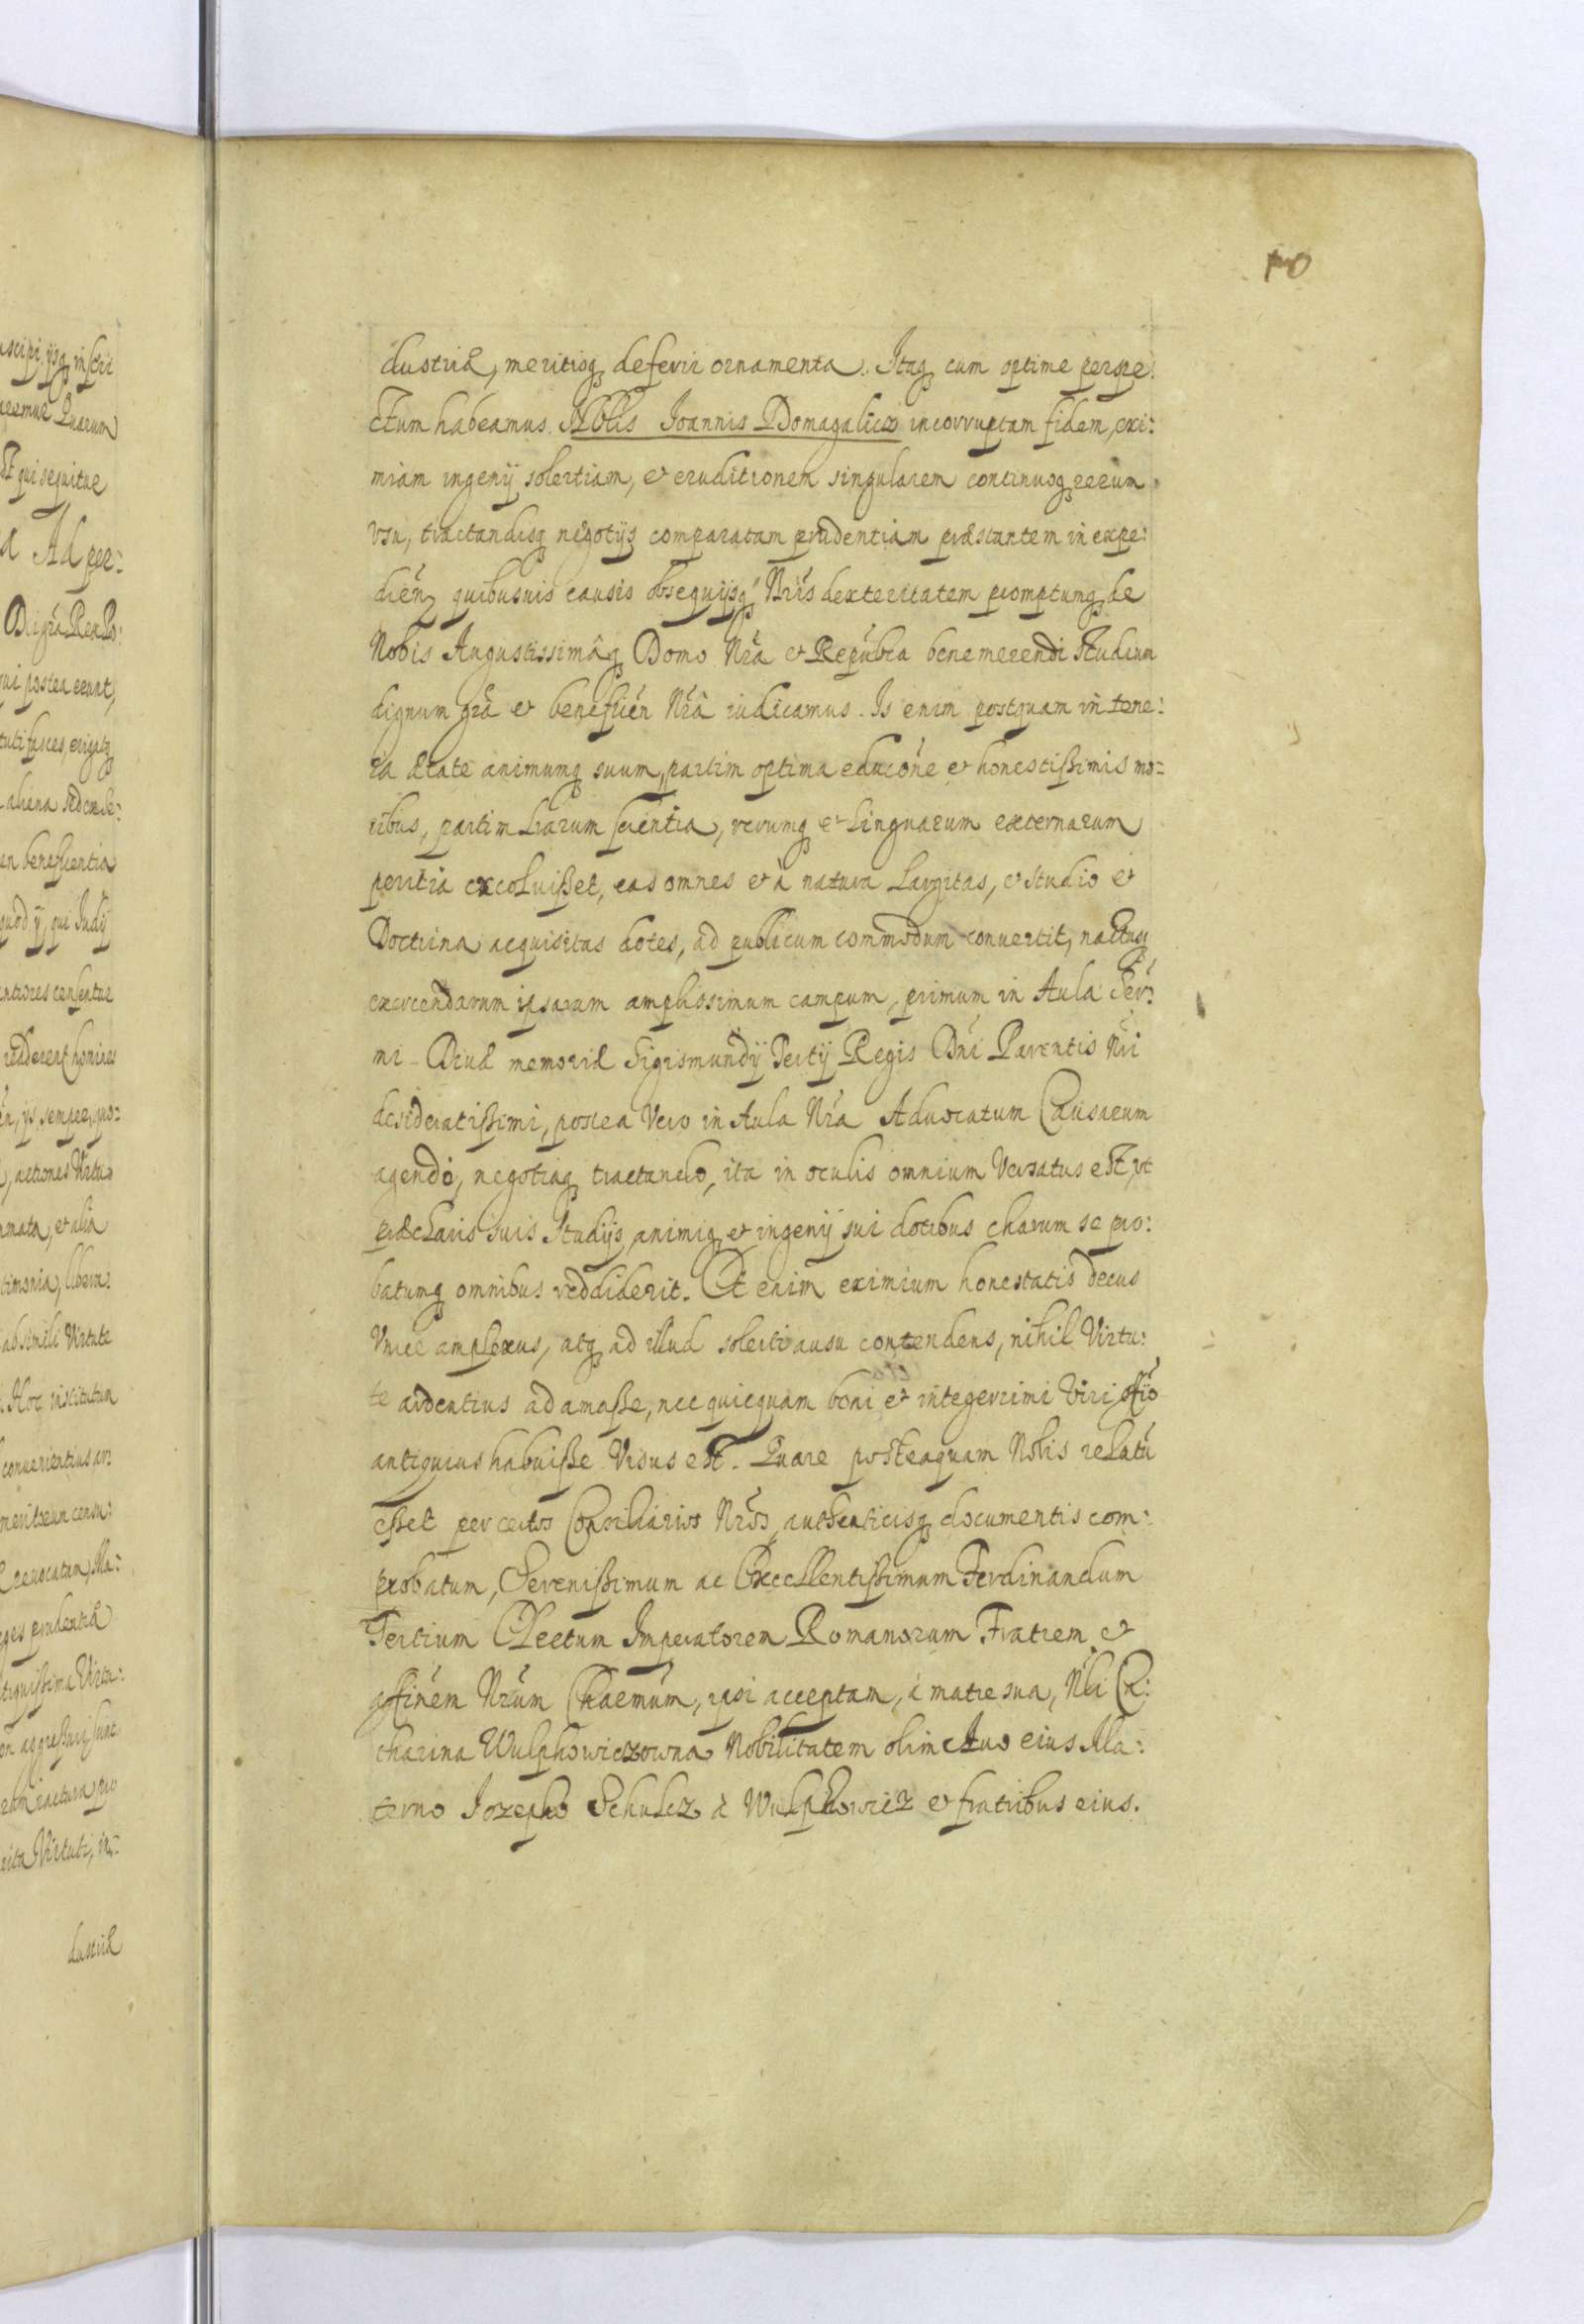 10
dustriæ, meritisq; deferri ornamenta. Itaq; cum optime perspe:
ctum habeamus Nblis Joannis Domagalicz incorruptam fidem, exi:
miam ingenij solertiam, et eruditionem singularem continuoq; rerum
vsu, tractandisq; negotijs comparatam prudentiam præstantem in expe:
dien̄ quibusuis causis obsequijsq; Nr̄is dexteritatem promptumq; de
Nobis Augustissimâq; Domo Nr̄a et Repub̄ca benemerendi Studium
dignum gr̄a et benefiēn Nr̄â iudicamus. Is enim postquam in tene:
ra ætate animumq; suum, partim optima educōne et honestissimis mo=
ribus, partim Lrarum scientia, rerumq; et Linguarum externarum
peritia excoluisset, eas omnes et à natura Largitas, et studio et
Doctrina acquisitas dotes, ad publicum commodum conuertit, nactusq;
exercendarum ipsarum amplissimum campum, primum in Aula Ser̄:
mi Diuæ memoriæ Sigismundij Tertij Regis Dn̄i Parentis Nr̄i
desideratissimi, postea Vero in Aula Nr̄a Aduocatum Causarum
agendo, negotiaq; tractando, ita in oculis omnium Versatus est, vt
præclaris suis Studijs, animiq; et ingenij sui dotibus charum se pro:
batumq; omnibus reddiderit. Et enim eximium honestatis decus
Vnice amplexus, atq; ad illud solerti ausu contendens, nihil Virtu:
te ardentius adamasse, nec quicquam boni et integerrimi Viri offīo
antiquius habuisse Visus est. Quare posteaquam Nobis relatū
esset per certos Consiliarios Nr̄os, authenticisq; documentis com:
probatum, Serenissimum ac Excellentissimum Ferdinandum
Tertium Electum Imperatorem Romanorum Fratrem et
affinem Nr̄um Chaemūm, ipsi acceptam, à matre sua, Nbli Ca:
tharina Wulphowiczowna Nobilitatem olim Auo eius Ma:
terno Jozepho Schulcz à Wulphowicz et fratribus eius.